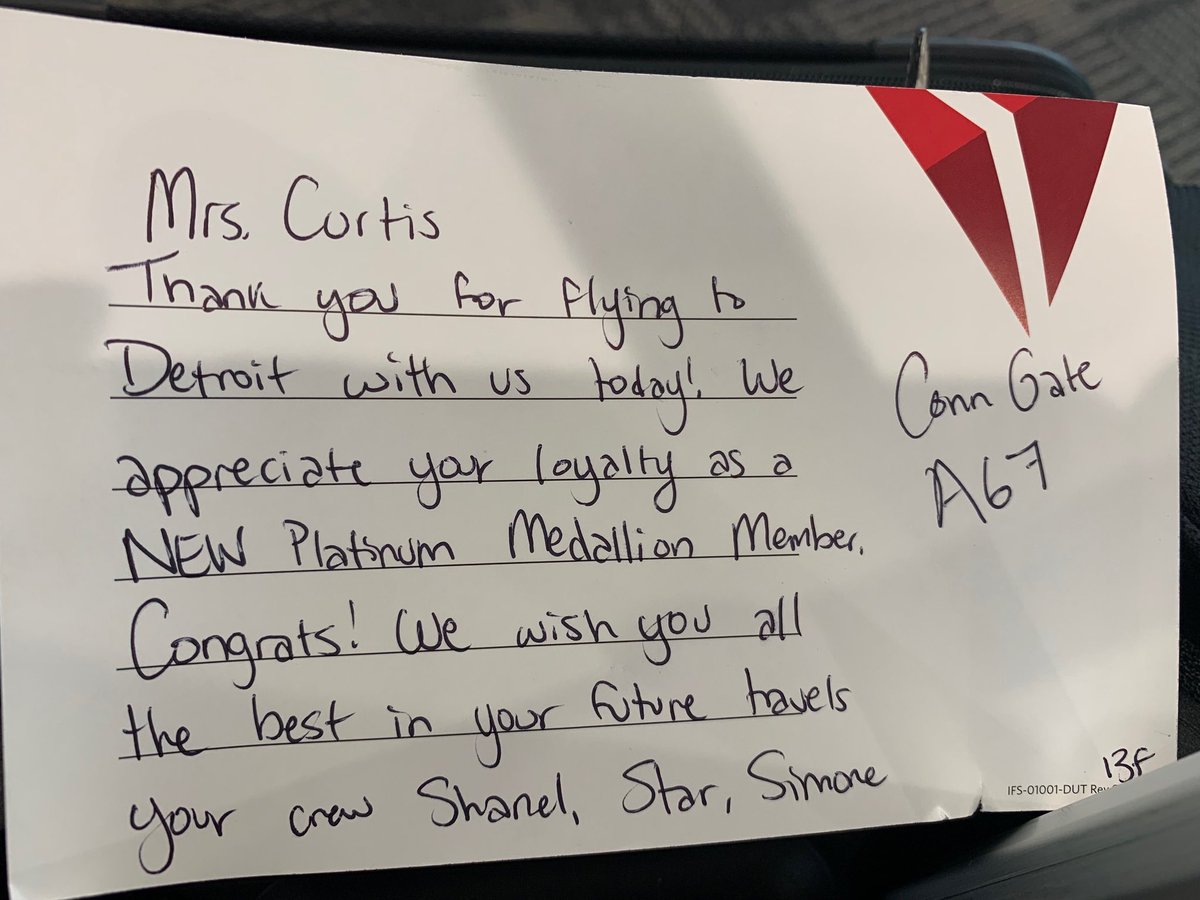 Mrs. Curtis
Thank you for flying to
Detroit with us today! We
appreciate your loyalty as a
NEW Platinum Medallion Member.
Congrats! We wish you all
the best in your future travels
your crew Shanel, Star, Simone
Conn Gate
A67
13F
IFS-01001-DUT Rev